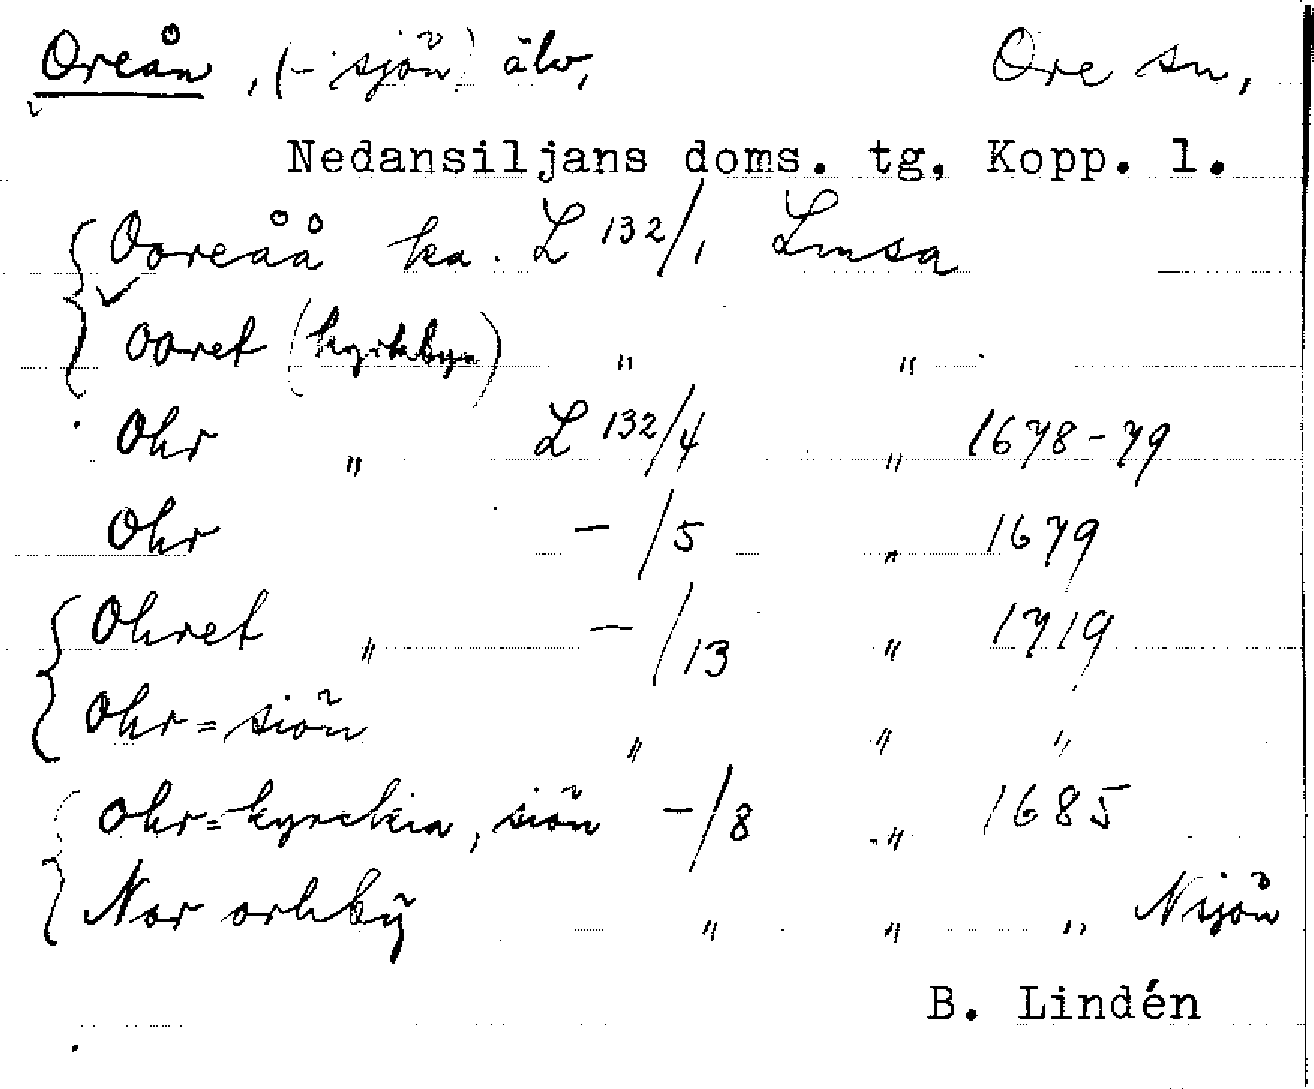 Oreån, (-sjön) älv, Ore sn,
Nedansiljans doms. tg. Kopp. l.
Ooreåå ka. L 132/1 Lmsa
Ooret (kyrkbyn) " "
Ohr " L 132/4 " 1678-79
Ohr - /5 " 1679
Ohret " - /13 " 1719
Ohr=siön " " "
Ohr=kyrckia, siön -/8 " 1685
Nor orheby " " " Nsjön
B. Lindén